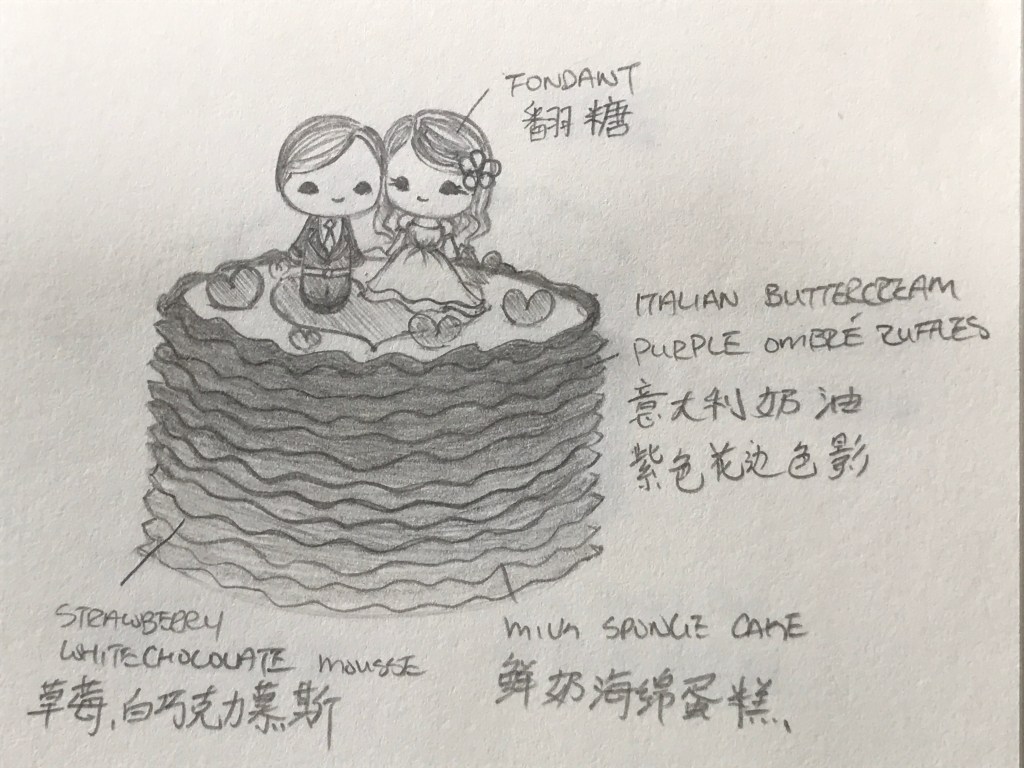 FONDANT
翻糖
ITALIAN BUTTERCREAM
PURPLE OMBRÉ RUFFLES
意大利奶油
紫色花边色影
STRAWBERRY
WHITECHOCOLATE MOUSSE
草莓,白巧克力慕斯
MILK SPONGE CAKE
鲜奶海绵蛋糕、